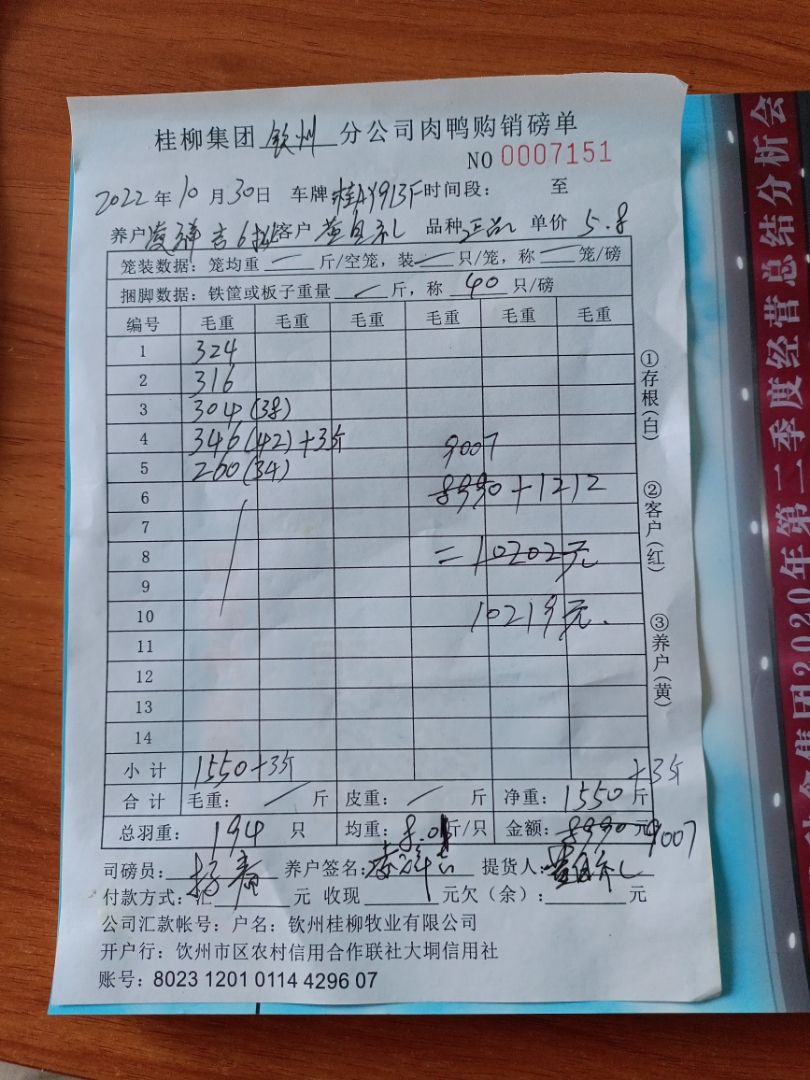 桂柳集团 钦州 分公司肉鸭购销磅单
NO 0007151
2022年10月30日 车牌:桂AY913F 时间段: 至
养户 凌祥吉6批 客户 董自礼 品种 正品 单价 5.8
笼装数据:笼均重 — 斤/空笼,装 — 只/笼,称 — 笼/磅
捆脚数据:铁筐或板子重量 / 斤,称 40 只/磅
编号 毛重 毛重 毛重 毛重 毛重 毛重
1 324
2 316
3 304(38)
4 346(42)+3斤
5 260(34) 9007
6 8990+1212
7
8 =10202元
9
10 10219元.
11
12
13
14
小计 1550+3斤 +3斤
合计 毛重: / 斤 皮重: / 斤 净重:1550斤
总羽重:194只 均重:8.01斤/只 金额:8990元 9007
司磅员: 杨 养户签名: 凌祥吉 提货人: 董自礼
付款方式:汇 元 收现 元欠(余): 元
公司汇款帐号:户名:钦州桂柳牧业有限公司
开户行:饮州市区农村信用合作联社大垌信用社
账号:8023 1201 0114 4296 07
①存根(白)
②客户(红)
③养户(黄)
集团2020年第二季度经营总结分析会